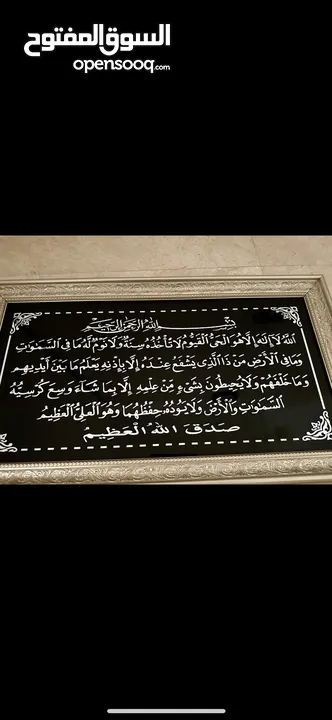 السوق المفتوح
opensooq.com
بسم الله الرحمن الرحيم
اللهُ لَا إِلَهَ إِلَّا هُوَ الْحَيُّ الْقَيُّومُ لَا تَأْخُذُهُ سِنَةٌ وَلَا نَوْمٌ لَّهُ مَا فِي السَّمَاوَاتِ
وَمَا فِي الْأَرْضِ مَن ذَا الَّذِي يَشْفَعُ عِندَهُ إِلَّا بِإِذْنِهِ يَعْلَمُ مَا بَيْنَ أَيْدِيهِم
وَمَا خَلْفَهُمْ وَلَا يُحِيطُونَ بِشَيْءٍ مِّنْ عِلْمِهِ إِلَّا بِمَا شَاءَ وَسِعَ كُرْسِيُّهُ
السَّمَاوَاتِ وَالْأَرْضَ وَلَا يَئُودُهُ حِفْظُهُمَا وَهُوَ الْعَلِيُّ الْعَظِيمُ
صَدَقَ اللهُ الْعَظِيمُ